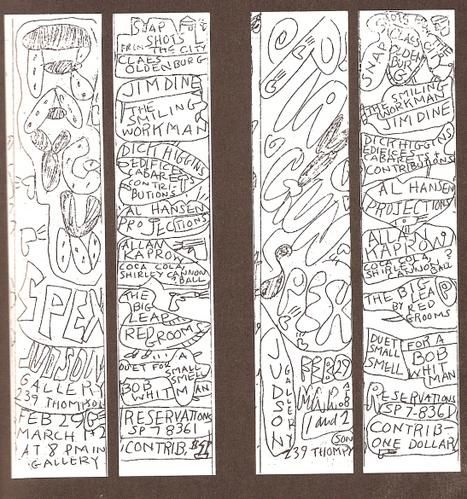 RAY
GUN
SPEX
JUDSON
GALLERY
239 THOMPSON
FEB 29
MARCH 1+2
AT 8 PM IN
GALLERY
SNAP
SHOTS
FROM THE CITY
CLAES
OLDENBURG
JIM DINE
THE
SMILING
WORKMAN
DICK HIGGINS
EDIFICES
CABARETS
CONTRI
BUTIONS
AL HANSEN
PROJECTIONS
ALLAN
KAPROW
COCA COLA,
SHIRLEY CANNON
BALL
THE
BIG
LEAP
RED GROOMS
DUET FOR A
SMALL
SMELL
BOB
WHITMAN
RESERVATIONS
SP 7 8361
CONTRIB. $1
SPEX
JUDSON
GALLERY
FEB 29
MAR.
AT 08
1 and 2
239 THOMPSON
SNAP
SHOTS
CLAES
OLDEN
BURG
THE SMILING
WORKMAN
JIM DINE
DICK HIGGINS
EDIFICES
CABARETS
CONTRIBUTIONS
AL HANSEN
PROJECTIONS
ALLAN
KAPROW
COCA COLA,
SHIRLEY
CANNONBALL?
THE BIG
LEAP
BY RED
GROOMS
DUET
SMALL
SMELL
FOR A
BOB
WHIT
MAN
RESERVATIONS
SP 7-8361
CONTRIB-
ONE DOLLAR